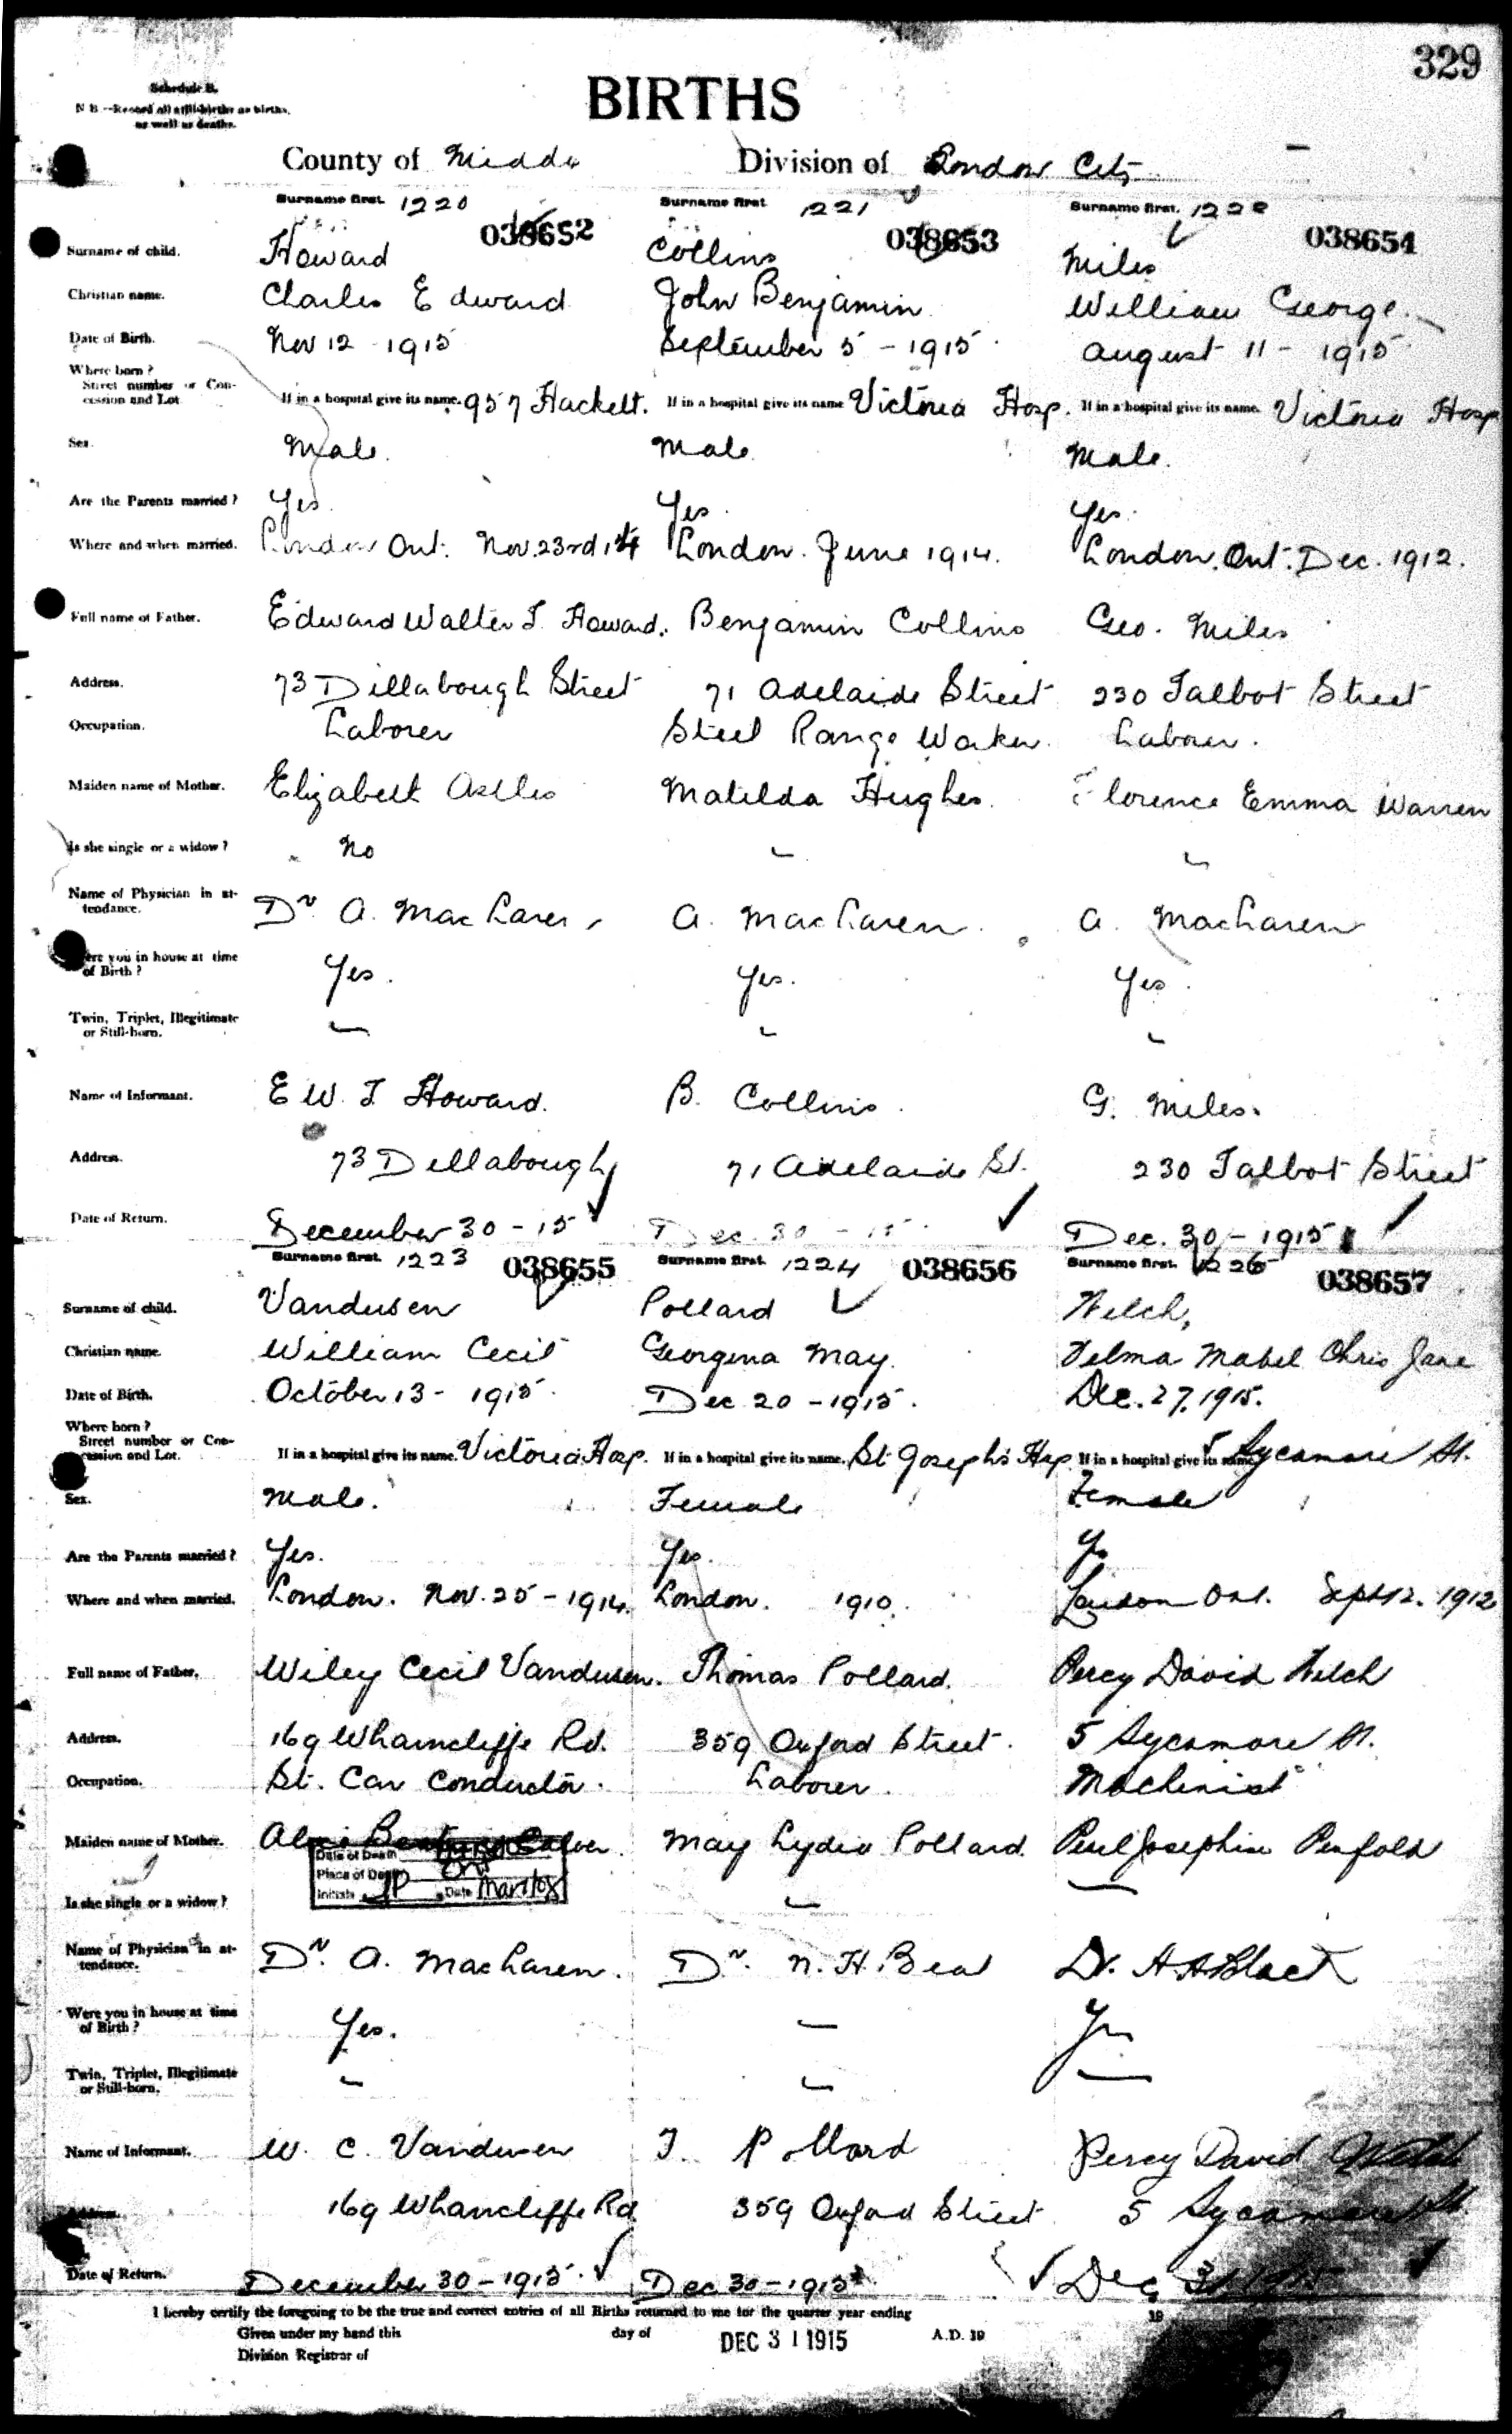 329
Schedule B.
N B —Record all still-births as births,
as well as deaths.
BIRTHS
County of Middx Division of London City
Surname first. 1220 Surname first 1221 Surname first. 1222
038652 038653 038654
Surname of child. Howard Collins Miles
Christian name. Charles Edward John Benjamin William George.
Date of Birth. Nov 12 - 1915 September 5 - 1915 August 11 - 1915
Where born?
Street number or Con-
cession and Lot If in a hospital give its name. 957 Hackett. If in a hospital give its name Victoria Hosp. If in a hospital give its name. Victoria Hosp
Sex. Male. Male Male.
Are the Parents married? Yes. Yes. Yes.
Where and when married. London Ont. Nov. 23rd, 14 London. June 1914. London. Ont. Dec. 1912.
Full name of Father. Edward Walter T. Howard. Benjamin Collins Geo. Miles
Address. 73 Dillabough Street 71 Adelaide Street 230 Talbot Street
Occupation. Laborer Steel Range Worker. Laborer.
Maiden name of Mother. Elizabeth Matilda Hughes. Florence Emma Warren
Is she single or a widow? No
Name of Physician in at-
tendance. Dr. A. MacLaren A. MacLaren A. MacLaren
Were you in house at time
of Birth? Yes. Yes. Yes.
Twin, Triplet, Illegitimate
or Still-born. — - -
Name of Informant. E W. T Howard. B. Collins. G. Miles.
Address. 73 Dillabough 71 Adelaide St. 230 Talbot Street
Date of Return. December 30 - 15 Dec. 30 - 15 Dec. 30 - 1915
Surname first. 1223 Surname first. 1224 Surname first. 1225
038655 038656 038657
Surname of child. Vandusen Pollard Welch,
Christian name. William Cecil Georgena May. Velma Mabel Chris Jane
Date of Birth. October 13 - 1915. Dec 20 - 1915. Dec. 27, 1915.
Where born?
Street number or Con-
cession and Lot. If in a hospital give its name. Victoria Hosp. If in a hospital give its name. St Joseph's Hosp If in a hospital give its name 5 Sycamore St.
Sex. Male. Female Female
Are the Parents married? Yes. Yes. Yes
Where and when married. London. Nov. 25 - 1914. London. 1910. London Ont. Sept 12. 1912
Full name of Father. Wiley Cecil Vandusen. Thomas Pollard. Percy David Welch
Address. 169 Wharncliffe Rd. 359 Oxford Street. 5 Sycamore St.
Occupation. St. Car Conductor. Laborer. Machinist
Maiden name of Mother. May Lydia Pollard. Perl Josephine Penfold
Date of Death
Place of Death Ont
Initials JP Date
Is she single or a widow? - —
Name of Physician in at-
tendance. Dr. A. MacLaren. Dr. N. H. Beal Dr. A A Black
Were you in house at time
of Birth? Yes. — Yes
Twin, Triplet, Illegitimate
or Still-born. - - —
Name of Informant. W. C. Vandusen T. Pollard Percy David Welch
Address. 169 Wharncliffe Rd 359 Oxford Street 5 Sycamore St.
Date of Return. December 30 - 1915. Dec 30 - 1915 Dec 31 1915
I hereby certify the foregoing to be the true and correct entries of all Births returned to me for the quarter year ending 19
Given under my hand this day of DEC 31 1915 A.D. 19
Division Registrar of